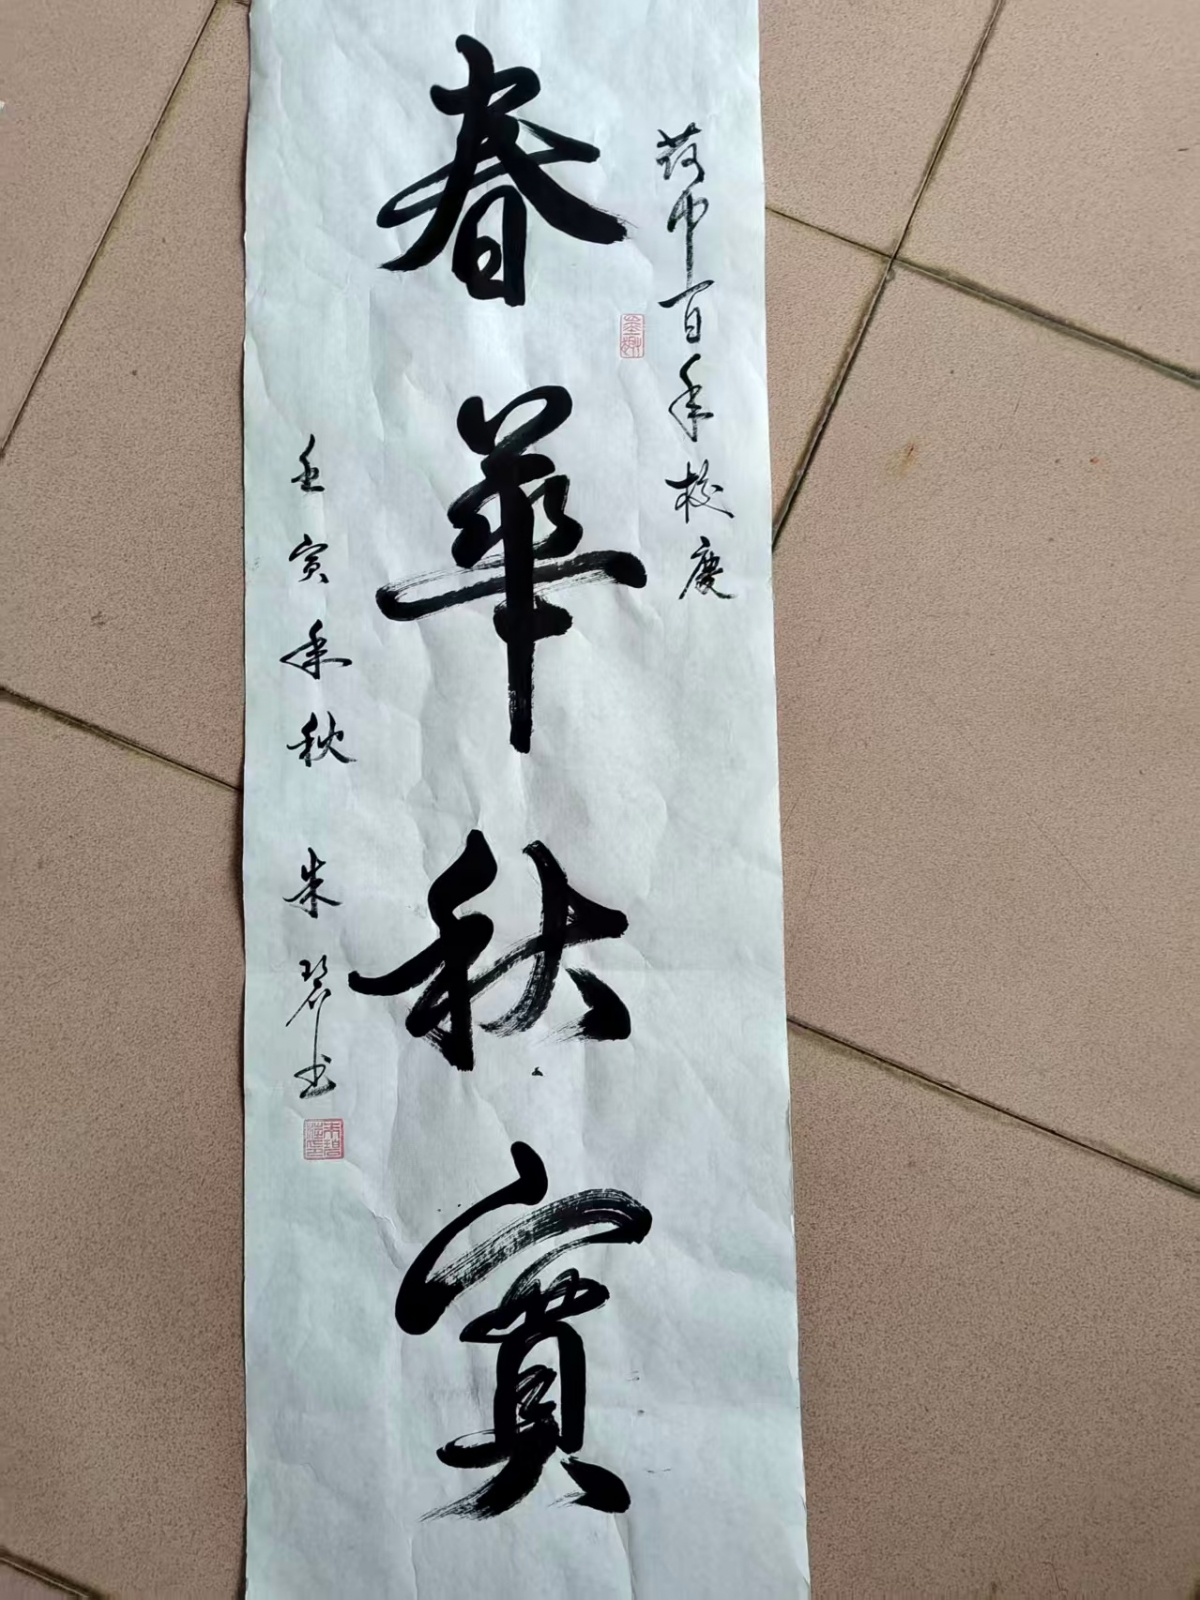 茂中百年校慶
春華秋實
壬寅年秋 朱碧书